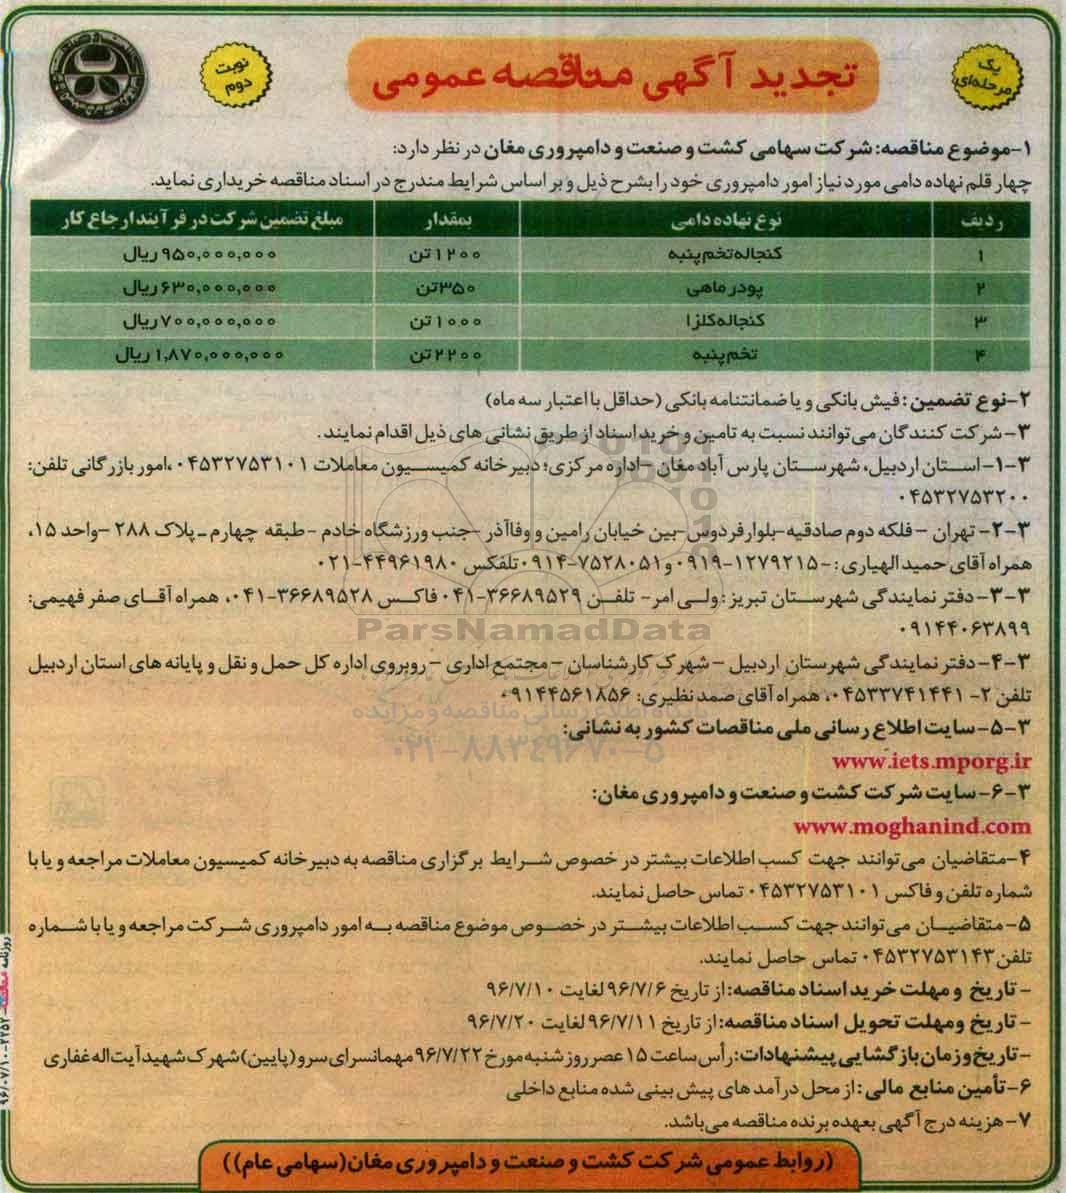 یک
مرحله‌ای
تجدید آگهی مناقصه عمومی
نوبت
دوم
۱-موضوع مناقصه: شرکت سهامی کشت و صنعت و دامپروری مغان در نظر دارد:
چهار قلم نهاده دامی مورد نیاز امور دامپروری خود را بشرح ذیل و بر اساس شرایط مندرج در اسناد مناقصه خریداری نماید.
ردیف نوع نهاده دامی بمقدار مبلغ تضمین شرکت در فرآیند ارجاع کار
۱ کنجاله تخم پنبه ۱۲۰۰ تن ۹۵۰,۰۰۰,۰۰۰ ریال
۲ پودر ماهی ۳۵۰ تن ۶۳۰,۰۰۰,۰۰۰ ریال
۳ کنجاله کلزا ۱۰۰۰ تن ۷۰۰,۰۰۰,۰۰۰ ریال
۴ تخم پنبه ۲۲۰۰ تن ۱,۸۷۰,۰۰۰,۰۰۰ ریال
۲-نوع تضمین: فیش بانکی و یا ضمانتنامه بانکی (حداقل با اعتبار سه ماه)
۳-شرکت کنندگان می‌توانند نسبت به تامین و خرید اسناد از طریق نشانی های ذیل اقدام نمایند.
۳-۱-استان اردبیل، شهرستان پارس آباد مغان -اداره مرکزی؛ دبیرخانه کمیسیون معاملات ۰۴۵۳۲۷۵۳۱۰۱، امور بازرگانی تلفن:
۰۴۵۳۲۷۵۳۲۰۰
۳-۲- تهران - فلکه دوم صادقیه-بلوار فردوس-بین خیابان رامین و وفاآذر -جنب ورزشگاه خادم -طبقه چهارم ـ پلاک ۲۸۸ -واحد ۱۵،
همراه آقای حمید الهیاری: ۰۹۱۹-۱۲۷۹۲۱۵۰ و ۰۹۱۴-۷۵۲۸۰۵۱ تلفکس ۰۲۱-۴۴۹۶۱۹۸۰
۳-۳-دفتر نمایندگی شهرستان تبریز: ولی امر- تلفن ۰۴۱-۳۶۶۸۹۵۲۹ فاکس ۰۴۱-۳۶۶۸۹۵۲۸، همراه آقای صفر فهیمی:
۰۹۱۴۴۰۶۳۸۹۹
۳-۴-دفتر نمایندگی شهرستان اردبیل - شهرک کارشناسان - مجتمع اداری - روبروی اداره کل حمل و نقل و پایانه های استان اردبیل
تلفن ۲- ۰۴۵۳۳۷۴۱۴۴۱، همراه آقای صمد نظیری: ۰۹۱۴۴۵۶۱۸۵۶
۳-۵-سایت اطلاع رسانی ملی مناقصات کشور به نشانی:
www.iets.mporg.ir
۳-۶-سایت شرکت کشت و صنعت و دامپروری مغان:
www.moghanind.com
۴-متقاضیان می‌توانند جهت کسب اطلاعات بیشتر در خصوص شرایط برگزاری مناقصه به دبیرخانه کمیسیون معاملات مراجعه و یا با
شماره تلفن و فاکس ۰۴۵۳۲۷۵۳۱۰۱ تماس حاصل نمایند.
۵-متقاضیان می‌توانند جهت کسب اطلاعات بیشتر در خصوص موضوع مناقصه به امور دامپروری شرکت مراجعه و یا با شماره
تلفن ۰۴۵۳۲۷۵۳۱۴۳ تماس حاصل نمایند.
- تاریخ و مهلت خرید اسناد مناقصه: از تاریخ ۹۶/۷/۶ لغایت ۹۶/۷/۱۰
- تاریخ و مهلت تحویل اسناد مناقصه: از تاریخ ۹۶/۷/۱۱ لغایت ۹۶/۷/۲۰
-تاریخ و زمان بازگشایی پیشنهادات: رأس ساعت ۱۵ عصر روز شنبه مورخ ۹۶/۷/۲۲ مهمانسرای سرو (پایین) شهرک شهید آیت اله غفاری
۶-تأمین منابع مالی: از محل درآمد های پیش بینی شده منابع داخلی
۷-هزینه درج آگهی بعهده برنده مناقصه می‌باشد.
(روابط عمومی شرکت کشت و صنعت و دامپروری مغان (سهامی عام))
ParsNamadData
۰۲۱-۸۸۳۴۹۶۷۰-۵